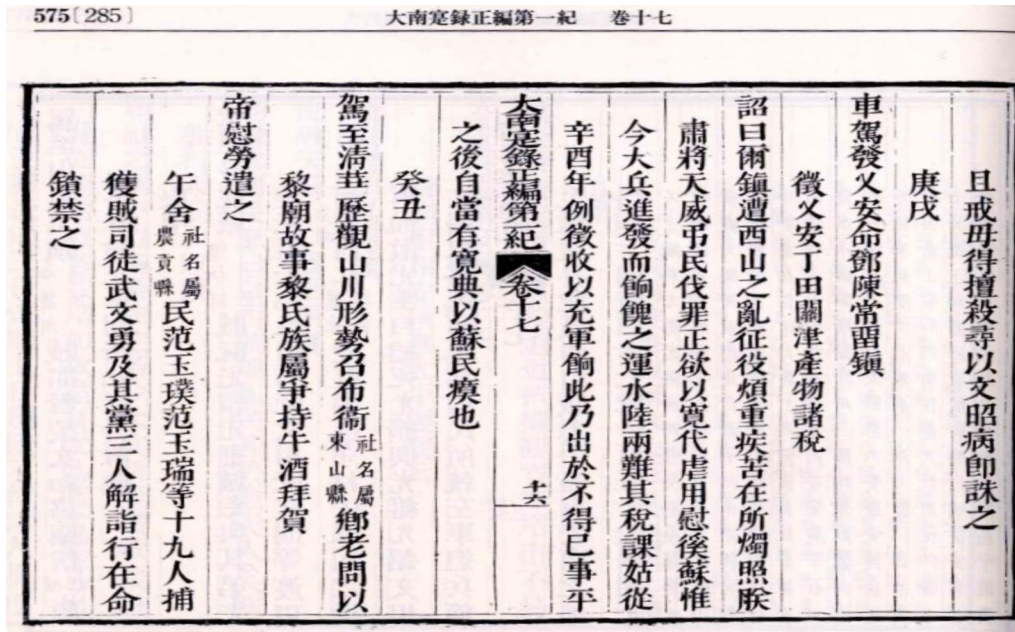 575[285]
大南寔録正編第一紀 卷十七
且戒毋得擅殺尋以文昭病卽誅之
庚戌
車駕發乂安命鄧陳常畱鎭
徵乂安丁田關津產物諸稅
詔曰爾鎭遭西山之亂征役煩重疾苦在所燭照朕
肅將天威弔民伐罪正欲以寬代虐用慰徯蘇惟
今大兵進發而餉餽之運水陸兩難其稅課姑從
辛酉年例徵收以充軍餉此乃出於不得已事平
大南寔錄正編第一紀 卷十七 十六
之後自當有寬典以蘇民瘼也
癸丑
駕至淸華歷觀山川形勢召布衞社名屬東山縣鄕老問以
黎廟故事黎氏族屬爭持牛酒拜賀
帝慰勞遣之
午舍社名屬農貢縣民范玉璞范玉瑞等十九人捕
獲賊司徒武文勇及其黨三人解詣行在命
鎖禁之